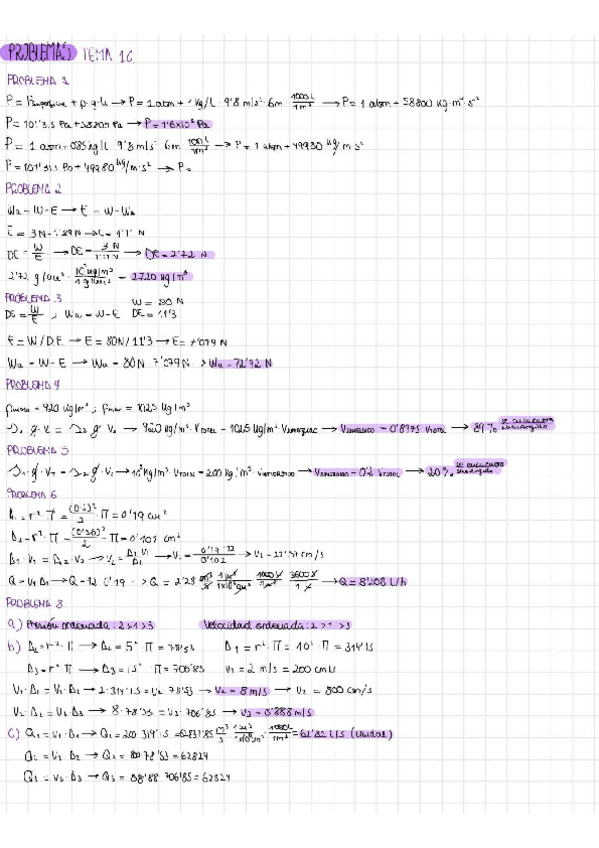 PROBLEMAS TEMA 10
PROBLEMA 1
P = Psuperficie + ρ·g·h → P = 1 atm + 1 kg/L · 9'8 m/s² · 6m 1000L/1m³ → P = 1 atm + 58800 kg·m·s²
P = 101'3.5 Pa + 58800 Pa → P = 1'6×10⁵ Pa
P = 1 atm + 0'85 kg/L · 9'8 m/s² · 6m 1000L/1m³ → P = 1 atm + 49980 kg/m·s²
P = 101'31.5 Pa + 49980 kg/m·s² → P =
PROBLEMA 2
Wa = W - E → E = W - Wa
E = 3N - 1'89N → E = 1'11 N
DE = W/E → DE = 3 N/1'11 N → DE = 2'72 N
2'72 g/cm³ · 10³ kg/m³/1 g/cm³ = 2720 kg/m³
PROBLEMA 3 W = 80 N
DE = W/E ; Wa = W - E DE = 11'3
E = W/D.E → E = 80N/11'3 → E = 7'079 N
Wa = W - E → Wa = 80N - 7'079N → Wa = 72'92 N
PROBLEMA 4
= 920 kg/m³ ; = 1025 kg/m³
· g · V = · g · V₂ → 920 kg/m³ · VTOTAL = 1025 kg/m³ → = 0'8975 VTOTAL → 89%
PROBLEMA 5
· g · V₁ = · g · V₂ → 10³ kg/m³ · = 200 kg/m³ · → = 0'2 VTOTAL → 20%
PROBLEMA 6
A₁ = r² · Π = (0'5)²/2 · Π = 0'19 cm²
A₂ = r² · Π = (0'36)²/2 · Π = 0'102 cm²
A₁ · V₁ = A₂ · V₂ → V₂ = A₁ V₁/A₂ → V₂ = 0'19 · 12/0'102 → V₂ = cm/s
Q = V₁ A₁ → Q = 12 · 0'19 → Q = 2'28 1000 L 3600 → Q = 8'208 L/h
PROBLEMA 8
a) Presión ordenada: 2 > 1 > 3 Velocidad ordenada: 2 > 1 > 3
b) A₂ = r² · Π → A₂ = 5² · Π = 78'54 A₁ = r² · Π = 10² · Π = 314'15
A₃ = r² · Π → A₃ = 15² · Π = 706'85 V₁ = 2 m/s = 200 cm/s
V₁ · A₁ = V₂ · A₂ → 2 · 314'15 = V₂ · 78'53 → V₂ = 8 m/s → V₂ = 800 cm/s
V₂ · A₂ = V₃ · A₃ → 8 · 78'53 = V₃ · 706'85 → V₃ = 0'888 m/s
c) Q₁ = V₁ · A₁ → Q₁ = 200 · 314'15 = 62831'85 = 62'82 L/s
Q₂ = V₂ · A₂ → Q₂ = 800 · 78'53 = 62824
Q₃ = V₃ · A₃ → Q₃ = 88'88 · 706'85 = 62824